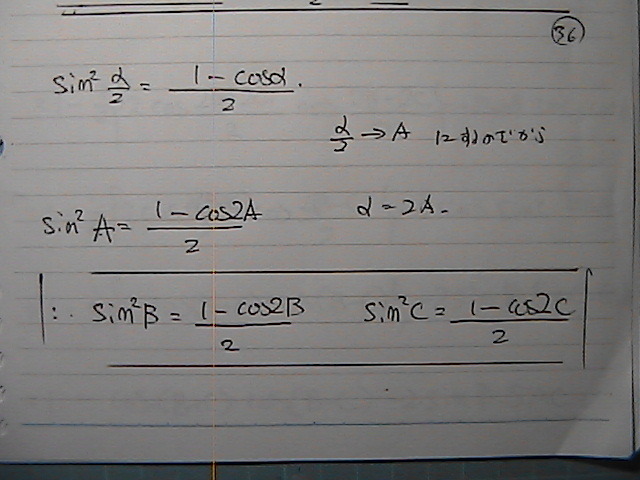 36
sin² α/2 = (1 - cosα)/2.
α/2 → A
sin² A = (1 - cos2A)/2 α = 2A.
∴ sin²B = (1 - cos2B)/2 sin²C = (1 - cos2C)/2